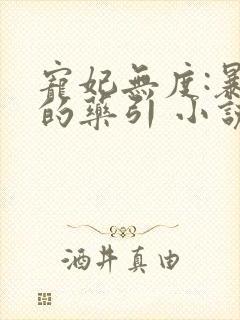 寵妃無度:暴
的藥引 小説
酒井真由